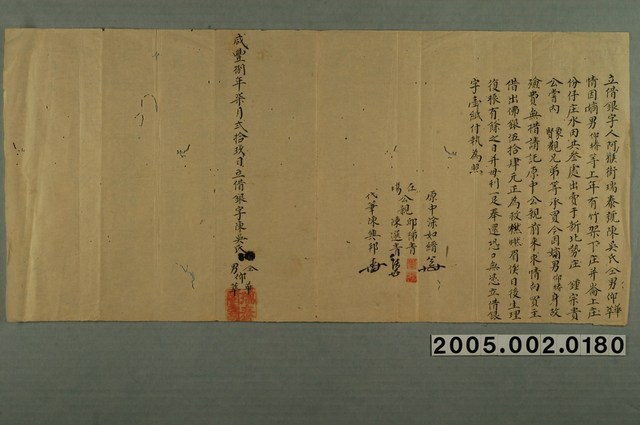 立借銀字人阿猴街瑞泰號陳吳氏仝男仰華
情因嫡男仰椿等上年有竹架下庄并崙上庄
份仔庄水田共叁處出賣于新北勢庄鍾宗貴
公嘗內賢親兄弟等承買今因嫡男仰椿身故
殯費無措請託原中公親前來求情向買主
借出佛銀伍拾肆元正為
日後生理
復振有餘之日并母利一足奉還恐口無憑立借銀
字壹紙付執為照
原中涂如
在場公親邱
陳
代筆陳興邦
咸豐捌年柒月弍拾玖日立借銀字陳吳氏
仝男仰華
2005.002.0180